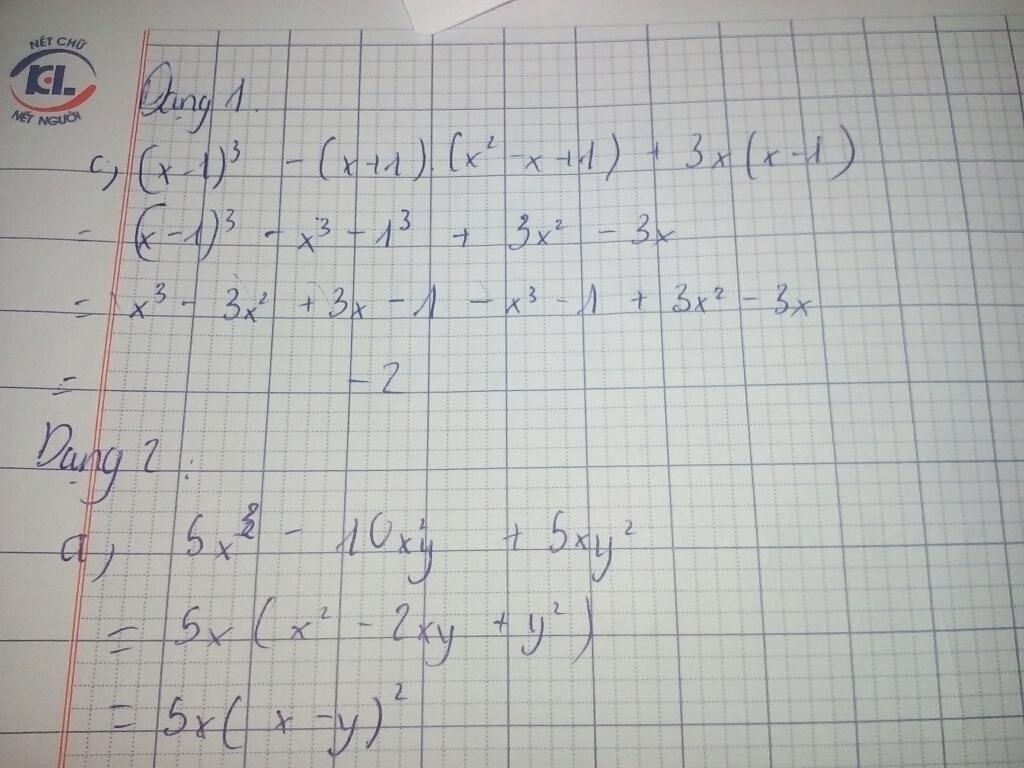 NÉT CHỮ
KL
NẾT NGƯỜI
Dạng 1.
c, (x-1)³ - (x+1) (x² - x +1) + 3x (x-1)
= (x-1)³ - x³ - 1³ + 3x² - 3x
= x³ - 3x² + 3x - 1 - x³ - 1 + 3x² - 3x
= -2
Dạng 2 :
a, 5x³ - 10x²y + 5xy²
= 5x (x² - 2xy + y²)
= 5x( x - y)²